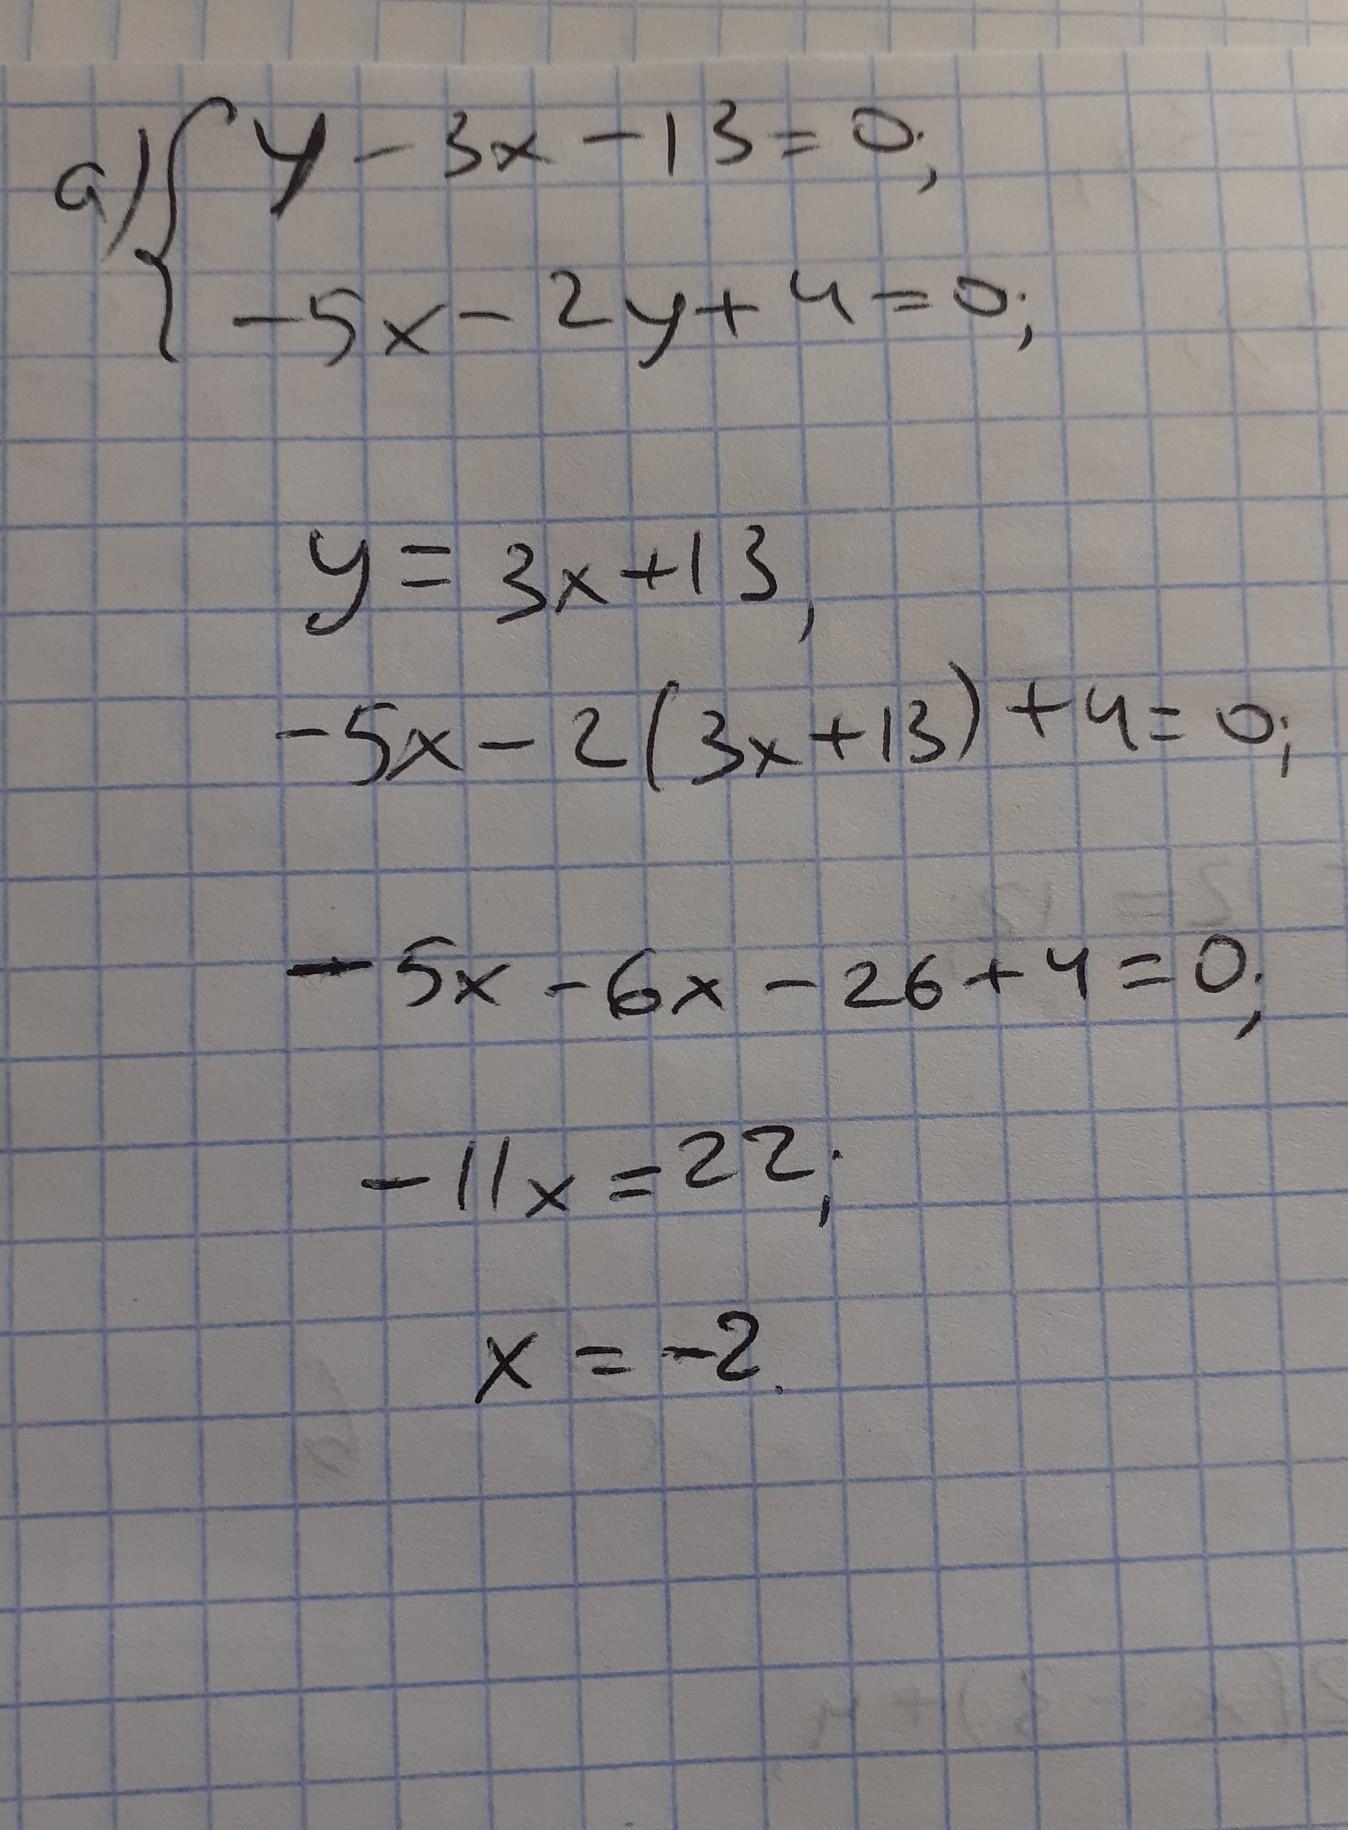 а) { y - 3x - 13 = 0;
-5x - 2y + 4 = 0;
y = 3x + 13,
-5x - 2(3x + 13) + 4 = 0;
-5x - 6x - 26 + 4 = 0;
-11x = 22;
x = -2.